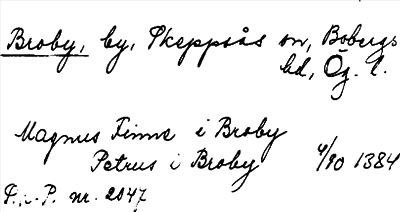 Broby, by, Skeppsås sn, Bobergs
hd, Ög. l.
Magnus Finne i Broby
Petrus i Broby 4/10 1384
S.-P. nr. 2047